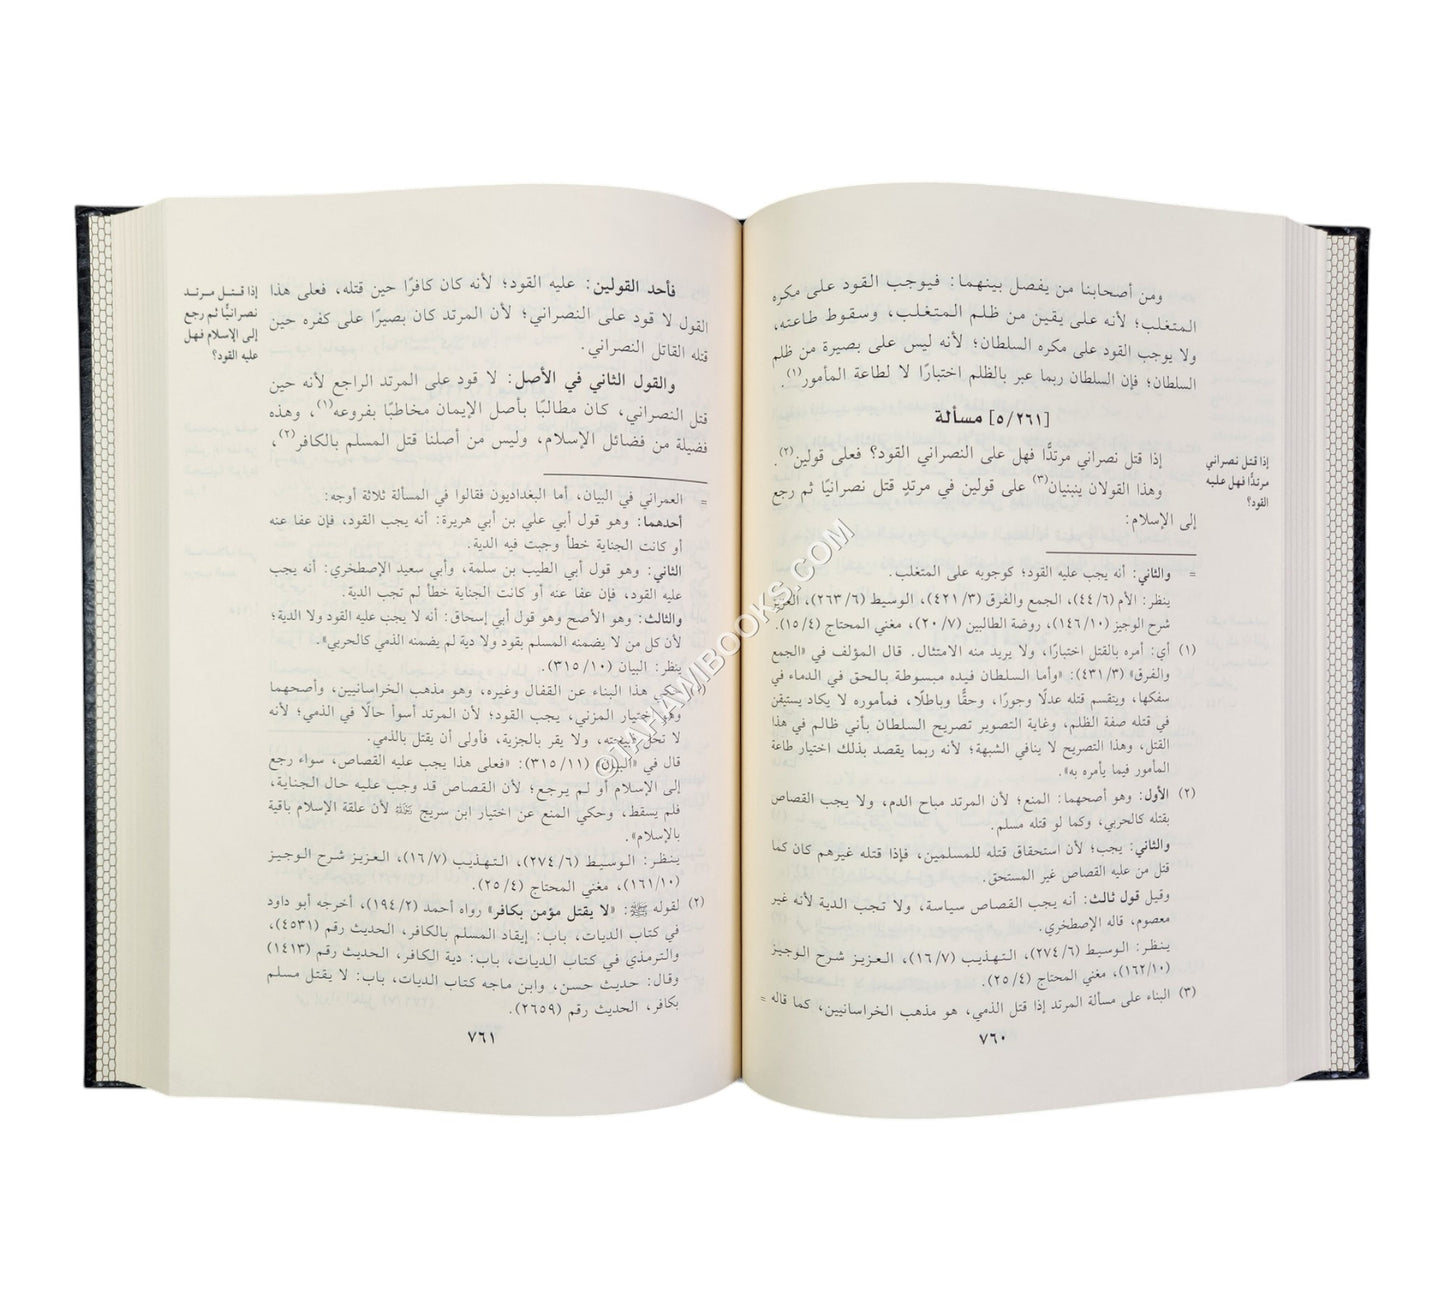 ومن أصحابنا من يفصل بينهما: فيوجب القود على مكره
المتغلب؛ لأنه على يقين من ظلم المتغلب، وسقوط طاعته،
ولا يوجب القود على مكره السلطان؛ لأنه ليس على بصيرة من ظلم
السلطان؛ فإن السلطان ربما عبر بالظلم اختبارًا لا لطاعة المأمور(١).
[٥/٢٦١] مسألة
إذا قتل نصراني مرتدًّا فهل على النصراني القود؟ فعلى قولين(٢).
وهذا القولان ينبنيان(٣) على قولين في مرتدٍ قتل نصرانيًا ثم رجع
إلى الإسلام:
إذا قتل نصراني
مرتدًّا فهل عليه
القود؟
= والثاني: أنه يجب عليه القود؛ كوجوبه على المتغلب.
ينظر: الأم (٤٤/٦)، الجمع والفرق (٤٢١/٣)، الوسيط (٢٦٣/٦)، العزيز
شرح الوجيز (١٤٦/١٠)، روضة الطالبين (٢٠/٧)، مغني المحتاج (١٥/٤).
(١) أي: أمره بالقتل اختبارًا، ولا يريد منه الامتثال. قال المؤلف في «الجمع
والفرق» (٤٣١/٣): «وأما السلطان فيده مبسوطة بالحق في الدماء في
سفكها، وينقسم قتله عدلًا وجورًا، وحقًّا وباطلًا، فمأموره لا يكاد يستيقن
في قتله صفة الظلم، وغاية التصوير تصريح السلطان بأني ظالم في هذا
القتل، وهذا التصريح لا ينافي الشبهة؛ لأنه ربما يقصد بذلك اختبار طاعة
المأمور فيما يأمره به».
(٢) الأول: وهو أصحهما: المنع؛ لأن المرتد مباح الدم، ولا يجب القصاص
بقتله كالحربي، وكما لو قتله مسلم.
والثاني: يجب؛ لأن استحقاق قتله للمسلمين، فإذا قتله غيرهم كان كما
قتل من عليه القصاص غير المستحق.
وقيل قول ثالث: أنه يجب القصاص سياسة، ولا تجب الدية لأنه غير
معصوم، قاله الإصطخري.
ينظر: الوسيط (٢٧٤/٦)، التهذيب (١٦/٧)، العزيز شرح الوجيز
(١٦٢/١٠)، مغني المحتاج (٢٥/٤).
(٣) البناء على مسألة المرتد إذا قتل الذمي، هو مذهب الخراسانيين، كما قاله =
٧٦٠
فأحد القولين: عليه القود؛ لأنه كان كافرًا حين قتله، فعلى هذا
القول لا قود على النصراني؛ لأن المرتد كان بصيرًا على كفره حين
قتله القاتل النصراني.
والقول الثاني في الأصل: لا قود على المرتد الراجع لأنه حين
قتل النصراني، كان مطالبًا بأصل الإيمان مخاطبًا بفروعه(١)، وهذه
فضيلة من فضائل الإسلام، وليس من أصلنا قتل المسلم بالكافر(٢)،
إذا قتل مرتد
نصرانيًّا ثم رجع
إلى الإسلام فهل
عليه القود؟
= العمراني في البيان، أما البغداديون فقالوا في المسألة ثلاثة أوجه:
أحدهما: وهو قول أبي علي بن أبي هريرة: أنه يجب القود، فإن عفا عنه
أو كانت الجناية خطأ وجبت فيه الدية.
الثاني: وهو قول أبي الطيب بن سلمة، وأبي سعيد الإصطخري: أنه يجب
عليه القود، فإن عفا عنه أو كانت الجناية خطأ لم تجب الدية.
والثالث: وهو الأصح وهو قول أبي إسحاق: أنه لا يجب عليه القود ولا الدية؛
لأن كل من لا يضمنه المسلم بقود ولا دية لم يضمنه الذمي كالحربي».
ينظر: البيان (٣١٥/١٠).
هذا البناء عن القفال وغيره، وهو مذهب الخراسانيين، وأصحهما
وهو اختيار المزني، يجب القود؛ لأن المرتد أسوأ حالًا في الذمي؛ لأنه
لا تحل ذبيحته، ولا يقر بالجزية، فأولى أن يقتل بالذمي.
قال في «البيان» (٣١٥/١١): «فعلى هذا يجب عليه القصاص، سواء رجع
إلى الإسلام أو لم يرجع؛ لأن القصاص قد وجب عليه حال الجناية،
فلم يسقط، وحكي المنع عن اختيار ابن سريج ﷺ لأن علقة الإسلام باقية
بالإسلام».
ينظر: الوسيط (٢٧٤/٦)، التهذيب (١٦/٧)، العزيز شرح الوجيز
(١٦١/١٠)، مغني المحتاج (٢٥/٤).
(٢) لقوله ﷺ: «لا يقتل مؤمن بكافر» رواه أحمد (١٩٤/٢)، أخرجه أبو داود
في كتاب الديات، باب: إيقاد المسلم بالكافر، الحديث رقم (٤٥٣١)،
والترمذي في كتاب الديات، باب: دية الكافر، الحديث رقم (١٤١٣)
وقال: حديث حسن، وابن ماجه كتاب الديات، باب: لا يقتل مسلم
بكافر، الحديث رقم (٢٦٥٩).
٧٦١
©JAHAWIBOOKS.COM